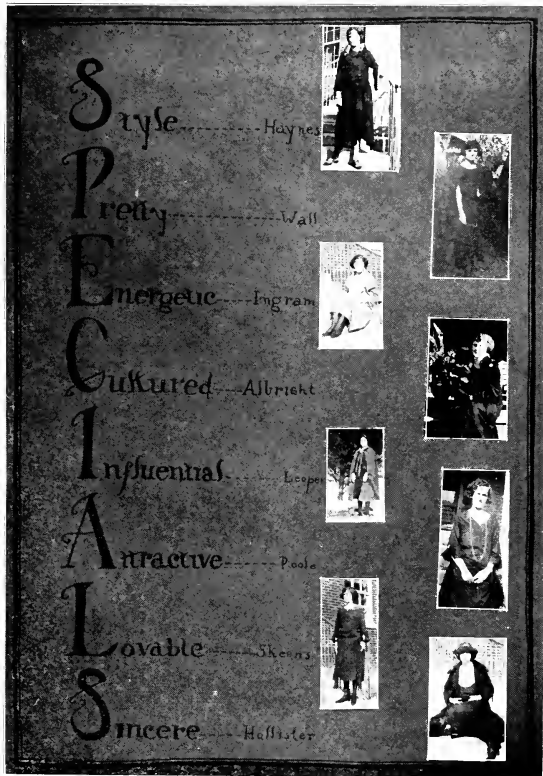 Style----------Haynes
Pretty------------Wall
Energetic----Ingram
Cultured---Albright
Influential-------Leeper
Attractive------Poole
Lovable------Skeens
Sincere----Hollister